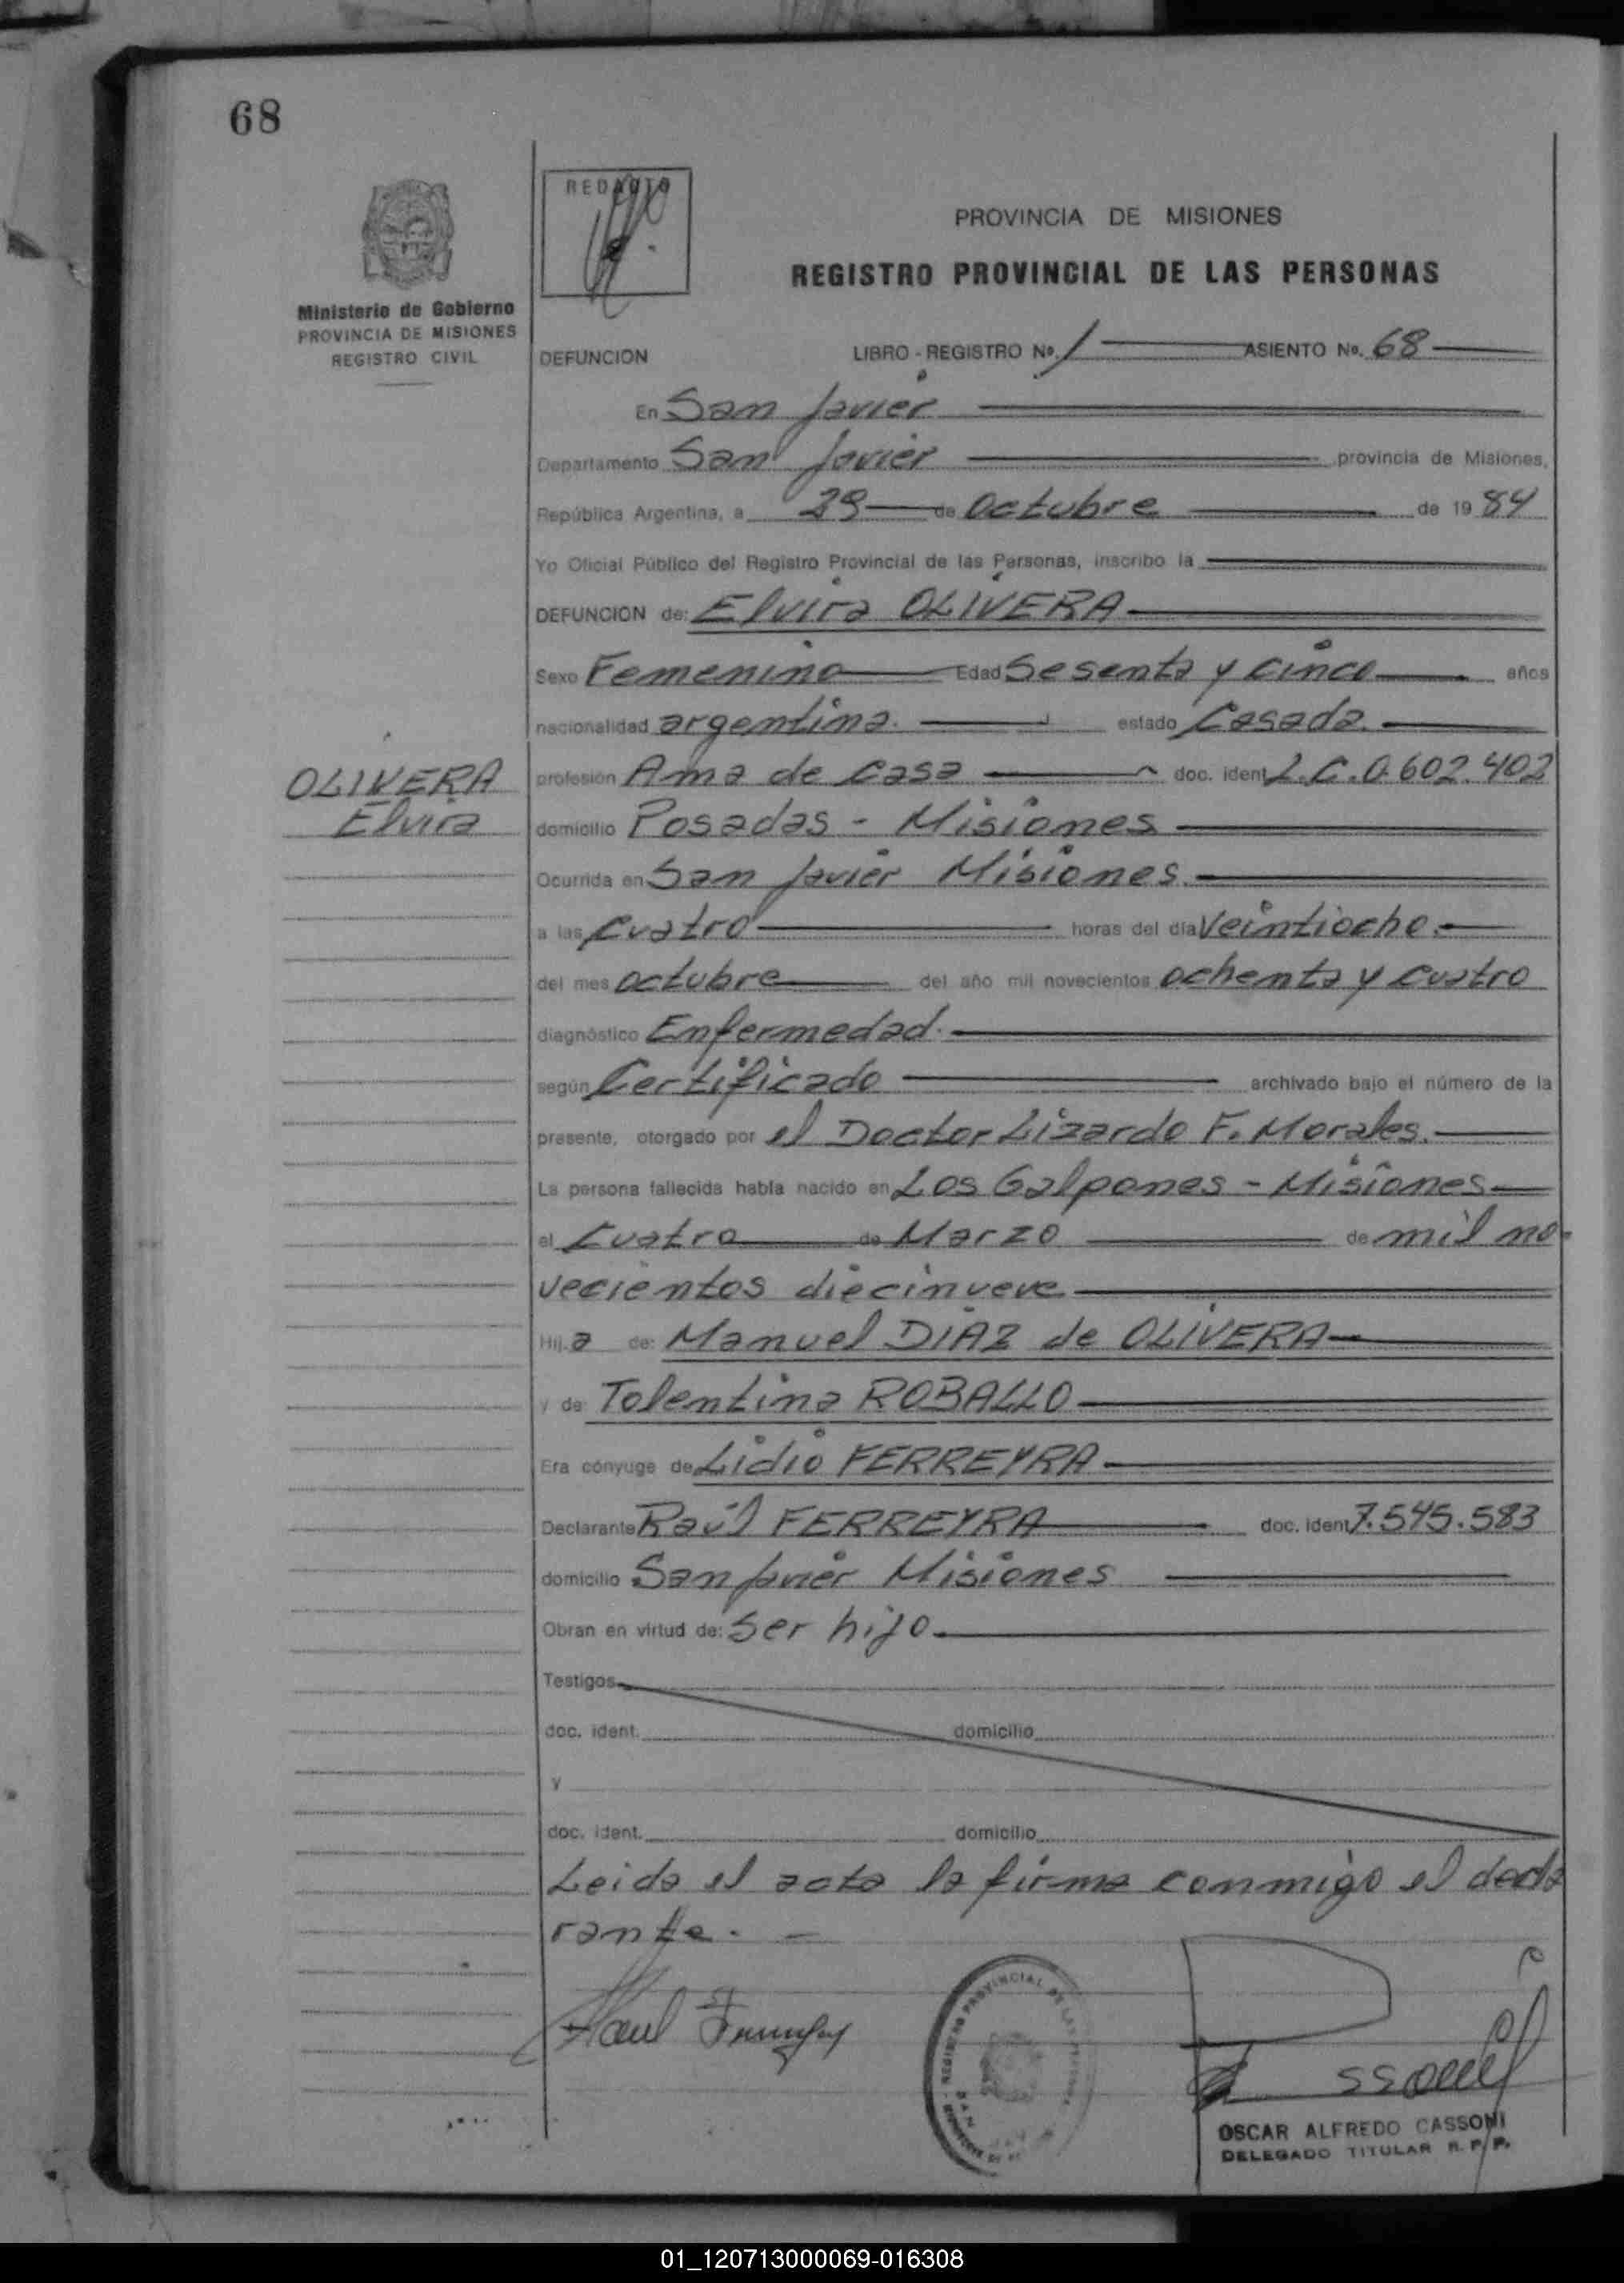 68
REDACTO
PROVINCIA DE MISIONES
REGISTRO PROVINCIAL DE LAS PERSONAS
Ministerio de Gobierno
PROVINCIA DE MISIONES
REGISTRO CIVIL
DEFUNCION LIBRO - REGISTRO No. 1 ASIENTO No. 68
En San Javier
Departamento San Javier provincia de Misiones,
República Argentina, a 29 de Octubre de 1984
Yo Oficial Público del Registro Provincial de las Personas, inscribo la
DEFUNCION de: Elvira OLIVERA
Sexo Femenino Edad Sesenta y cinco años
nacionalidad argentina. estado Casada.
OLIVERA
Elvira
profesión Ama de casa doc. ident. L.C. 0.602.402
domicilio Posadas - Misiones
Ocurrida en San Javier Misiones.
a las Cuatro horas del día Veintiocho.
del mes octubre del año mil novecientos ochenta y cuatro
diagnóstico Enfermedad.
según Certificado archivado bajo el número de la
presente, otorgado por el Doctor Lizardo F. Morales.
La persona fallecida había nacido en Los Galpones - Misiones
el Cuatro de Marzo de mil no-
vecientos diecinueve
Hij.a de: Manuel DIAZ de OLIVERA
y de Tolentina ROBALLO
Era cónyuge de Lidio FERREYRA
Declarante Raúl FERREYRA doc. ident. 7.545.583
domicilio San Javier Misiones
Obran en virtud de: Ser hijo
Testigos
doc. ident. domicilio
y
doc. ident. domicilio
Leida el acta la firma conmigo el decla
rante. -
Raul
REGISTRO PROVINCIAL DE LAS PERSONAS
SAN
OSCAR ALFREDO CASSONI
DELEGADO TITULAR R. P. P.
01_120713000069-016308